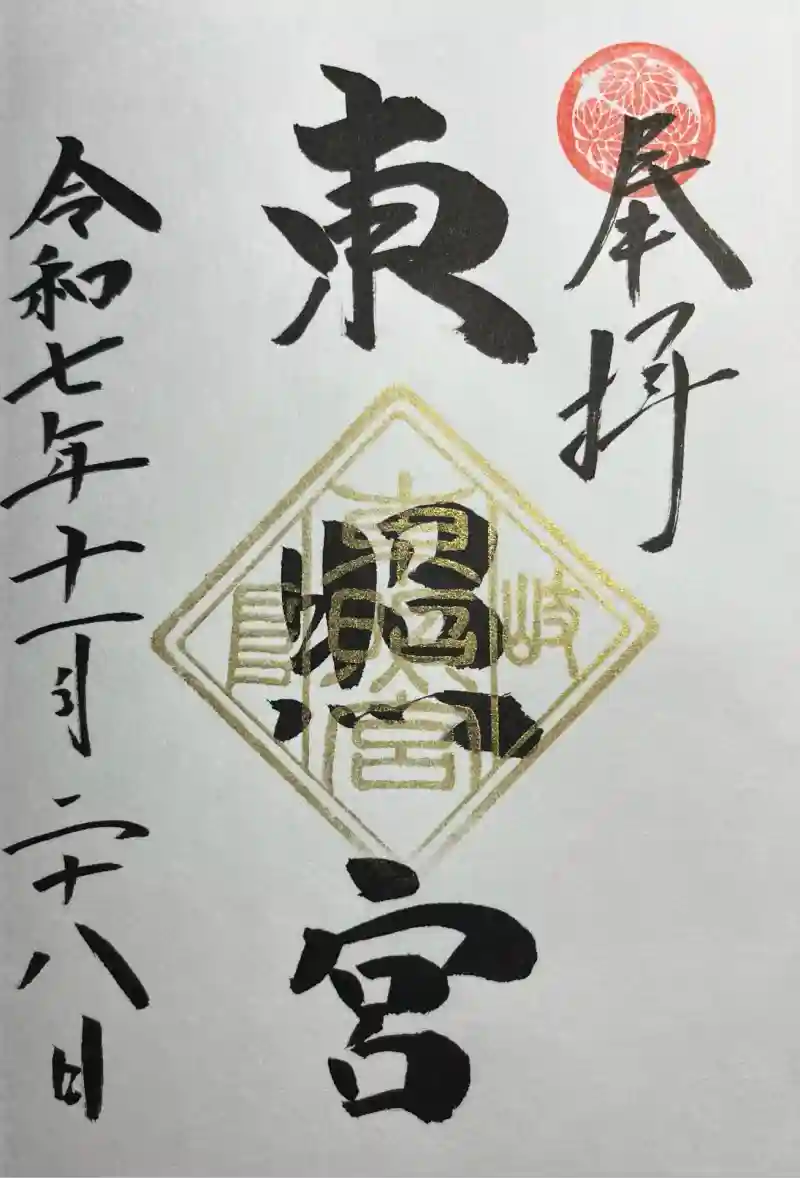 奉拝
東照宮
岐
東照宮
令和七年十一月二十八日